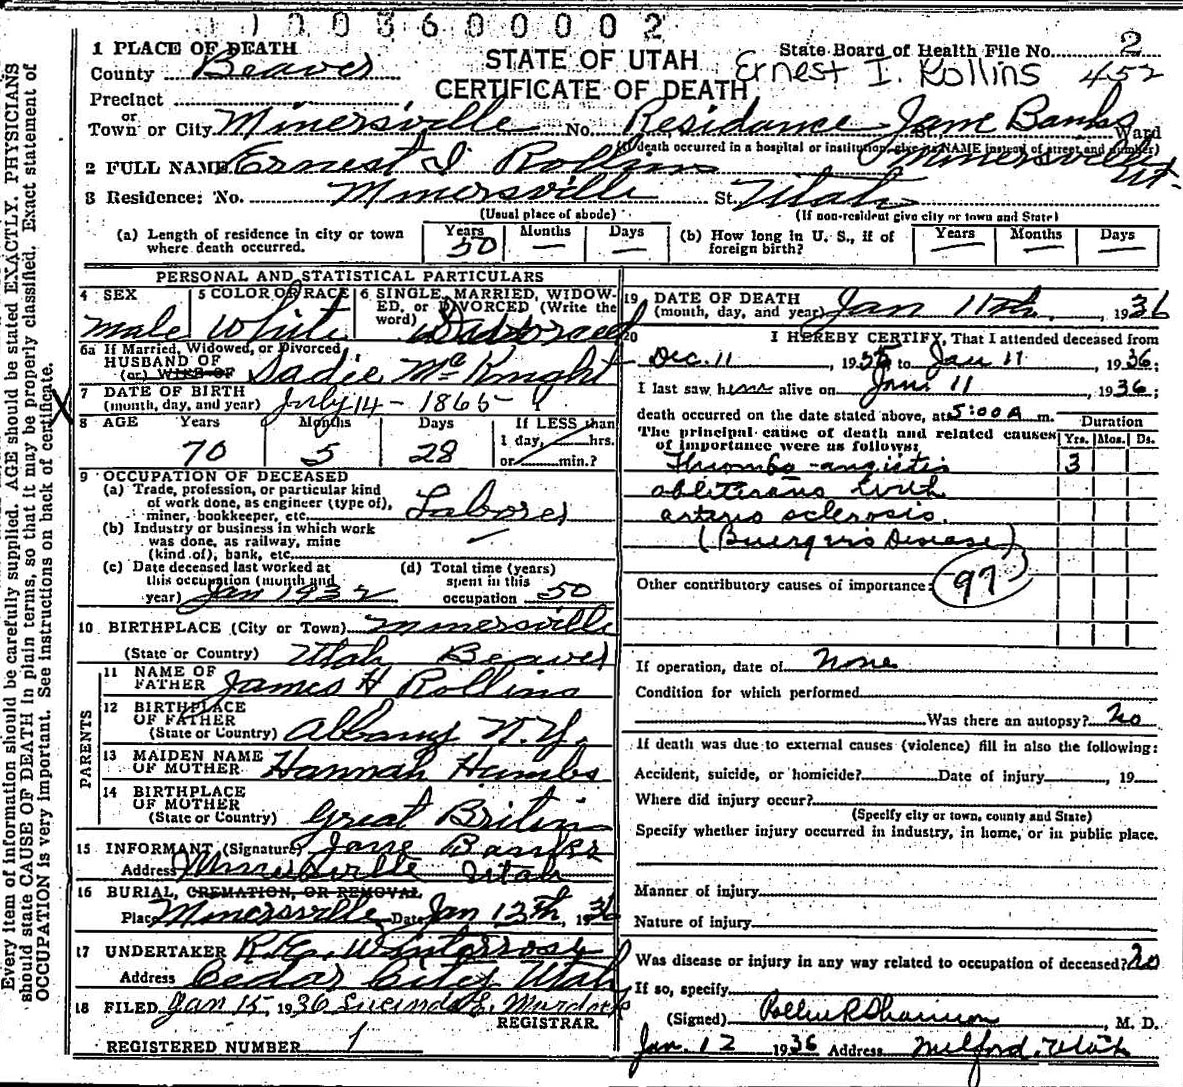 1 0 0 3 6 0 0 0 0 2
1 PLACE OF DEATH
County Beaver
STATE OF UTAH
CERTIFICATE OF DEATH
State Board of Health File No. 2
Ernest I. Rollins 452
Precinct
or
Town or City Minersville No. Residance Jane Banks Ward
(If death occurred in a hospital or institution, give its NAME instead of street and number)
Minersville Ut.
2 FULL NAME Ernest I Rollins
3 Residence: No. Minersville St. Utah
(Usual place of abode) (If non-resident give city or town and State)
(a) Length of residence in city or town where death occurred. Years 50 Months — Days —
(b) How long in U. S., if of foreign birth? Years — Months — Days —
PERSONAL AND STATISTICAL PARTICULARS
4 SEX male
5 COLOR OR RACE White
6 SINGLE, MARRIED, WIDOWED, OR DIVORCED (Write the word)
6a If Married, Widowed, or Divorced
HUSBAND OF
(or) WIFE OF Sadie McKnight
7 DATE OF BIRTH
(month, day, and year) July 14 - 1865
8 AGE Years 70 Months 5 Days 28
If LESS than
1 day, hrs.
or min.?
9 OCCUPATION OF DECEASED
(a) Trade, profession, or particular kind
of work done, as engineer (type of),
miner, bookkeeper, etc. Laborer
(b) Industry or business in which work
was done, as railway, mine
(kind of), bank, etc. —
(c) Date deceased last worked at
this occupation (month and
year) Jan 1932
(d) Total time (years)
spent in this
occupation 50
10 BIRTHPLACE (City or Town) Minersville
(State or Country) Utah Beaver
PARENTS
11 NAME OF
FATHER James H Rollins
12 BIRTHPLACE
OF FATHER
(State or Country) Albany N.Y.
13 MAIDEN NAME
OF MOTHER Hannah Humbs
14 BIRTHPLACE
OF MOTHER
(State or Country) Great Britin
15 INFORMANT (Signature) Jane Banks
Address Minersville Utah
16 BURIAL, CREMATION, OR REMOVAL
Place Minersville Date Jan 12th, 1936
17 UNDERTAKER
Address Cedar City Utah
18 FILED Jan 15, 1936 Lucinda L. Murdock
REGISTRAR.
REGISTERED NUMBER 1
19 DATE OF DEATH
(month, day, and year) Jan 11th, 1936
20 I HEREBY CERTIFY, That I attended deceased from
Dec. 11, 1935 to Jan 11, 1936;
I last saw him alive on Jan 11 1936;
death occurred on the date stated above, at 5:00 A m.
The principal cause of death and related causes
of importance were as follows:
Duration
Yrs. Mos. Ds.
Thrombo-angiitis 3
obliterans with
arterio sclerosis.
(Buerger's Disease)
97
Other contributory causes of importance:
If operation, date of None
Condition for which performed
Was there an autopsy? no
If death was due to external causes (violence) fill in also the following:
Accident, suicide, or homicide? Date of injury , 19
Where did injury occur?
(Specify city or town, county and State)
Specify whether injury occurred in industry, in home, or in public place.
Manner of injury
Nature of injury
Was disease or injury in any way related to occupation of deceased? no
If so, specify
(Signed) , M. D.
Jan. 12 1936 Address Milford, Utah
Every item of information should be carefully supplied. AGE should be stated EXACTLY. PHYSICIANS
should state CAUSE OF DEATH in plain terms, so that it may be properly classified. Exact statement of
OCCUPATION is very important. See instructions on back of certificate.
X